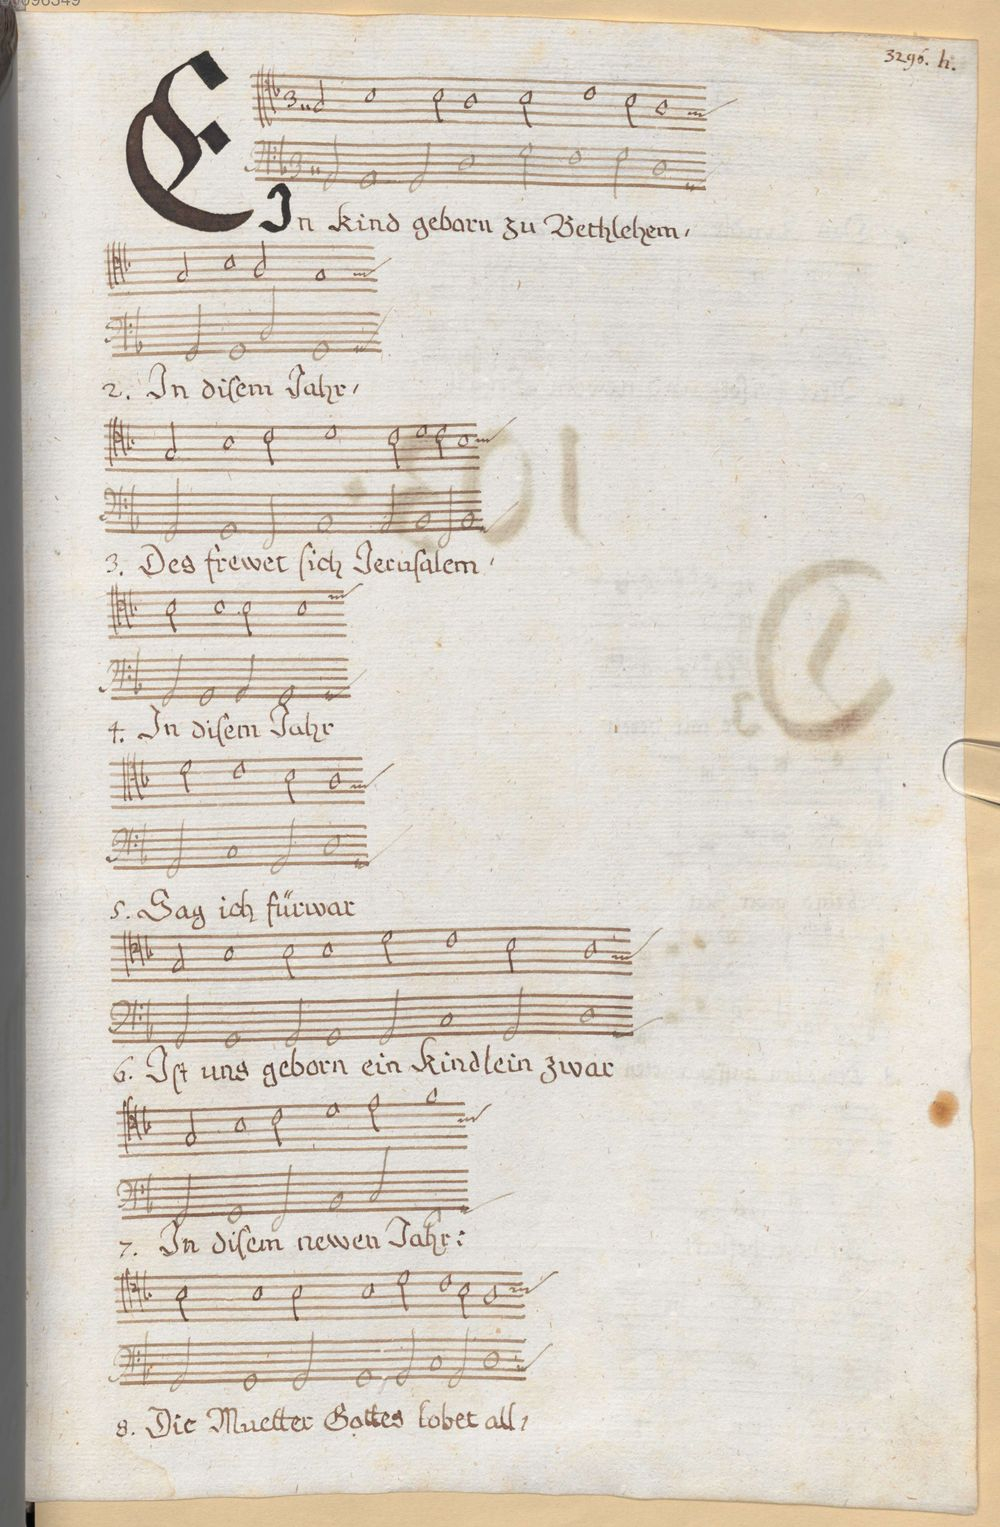 3296. h.
EIn kind geborn zu Bethlehem,
2. In disem Jahr,
3. Des frewet sich Jerusalem,
4. In disem Jahr
5. Sag ich fürwar
6. Ist uns geborn ein kindlein zwar
7. In disem newen Jahr:
8. Die Muetter Gottes lobet all,